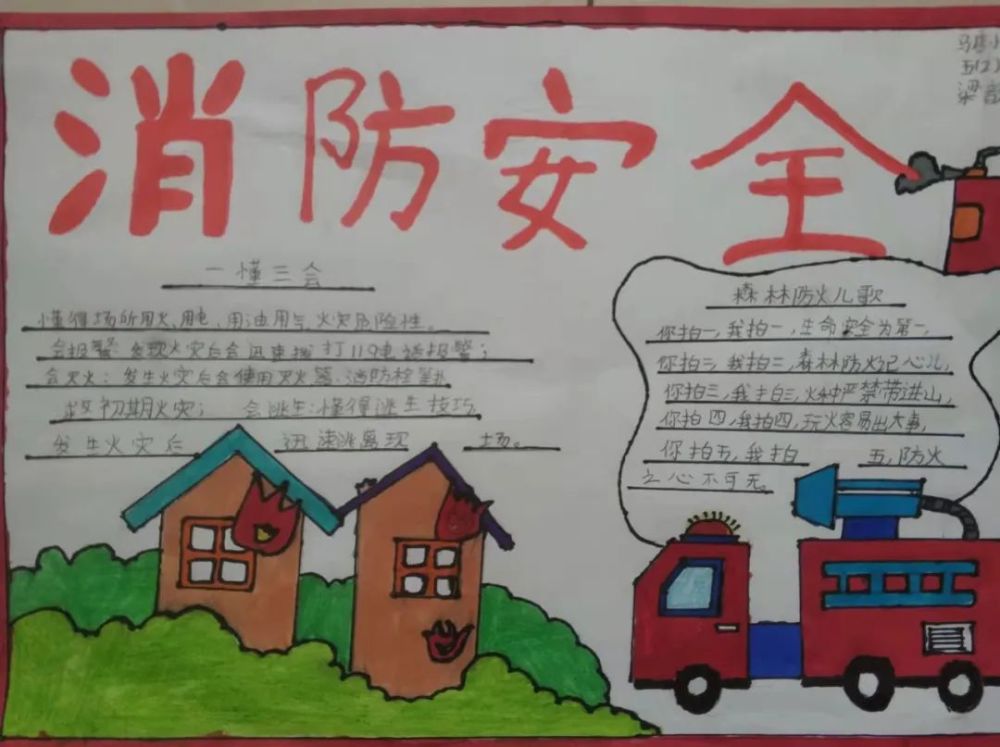 消防安全
5(2)
梁
一懂三会
懂得场所用火、用电、用油用气火灾危险性。
会报警:发现火灾后会迅速拨打119电话报警;
会灭火:发生火灾后会使用灭火器、消防栓等扑
救初期火灾; 会逃生:懂得逃生技巧,
发生火灾后 迅速逃离现 场。
森林防火儿歌
你拍一,我拍一,生命安全为第一,
你拍二,我拍二,森林防火记心儿,
你拍三,我拍三,火种严禁带进山,
你拍四,我拍四,玩火容易出大事,
你拍五,我拍 五,防火
之心不可无。